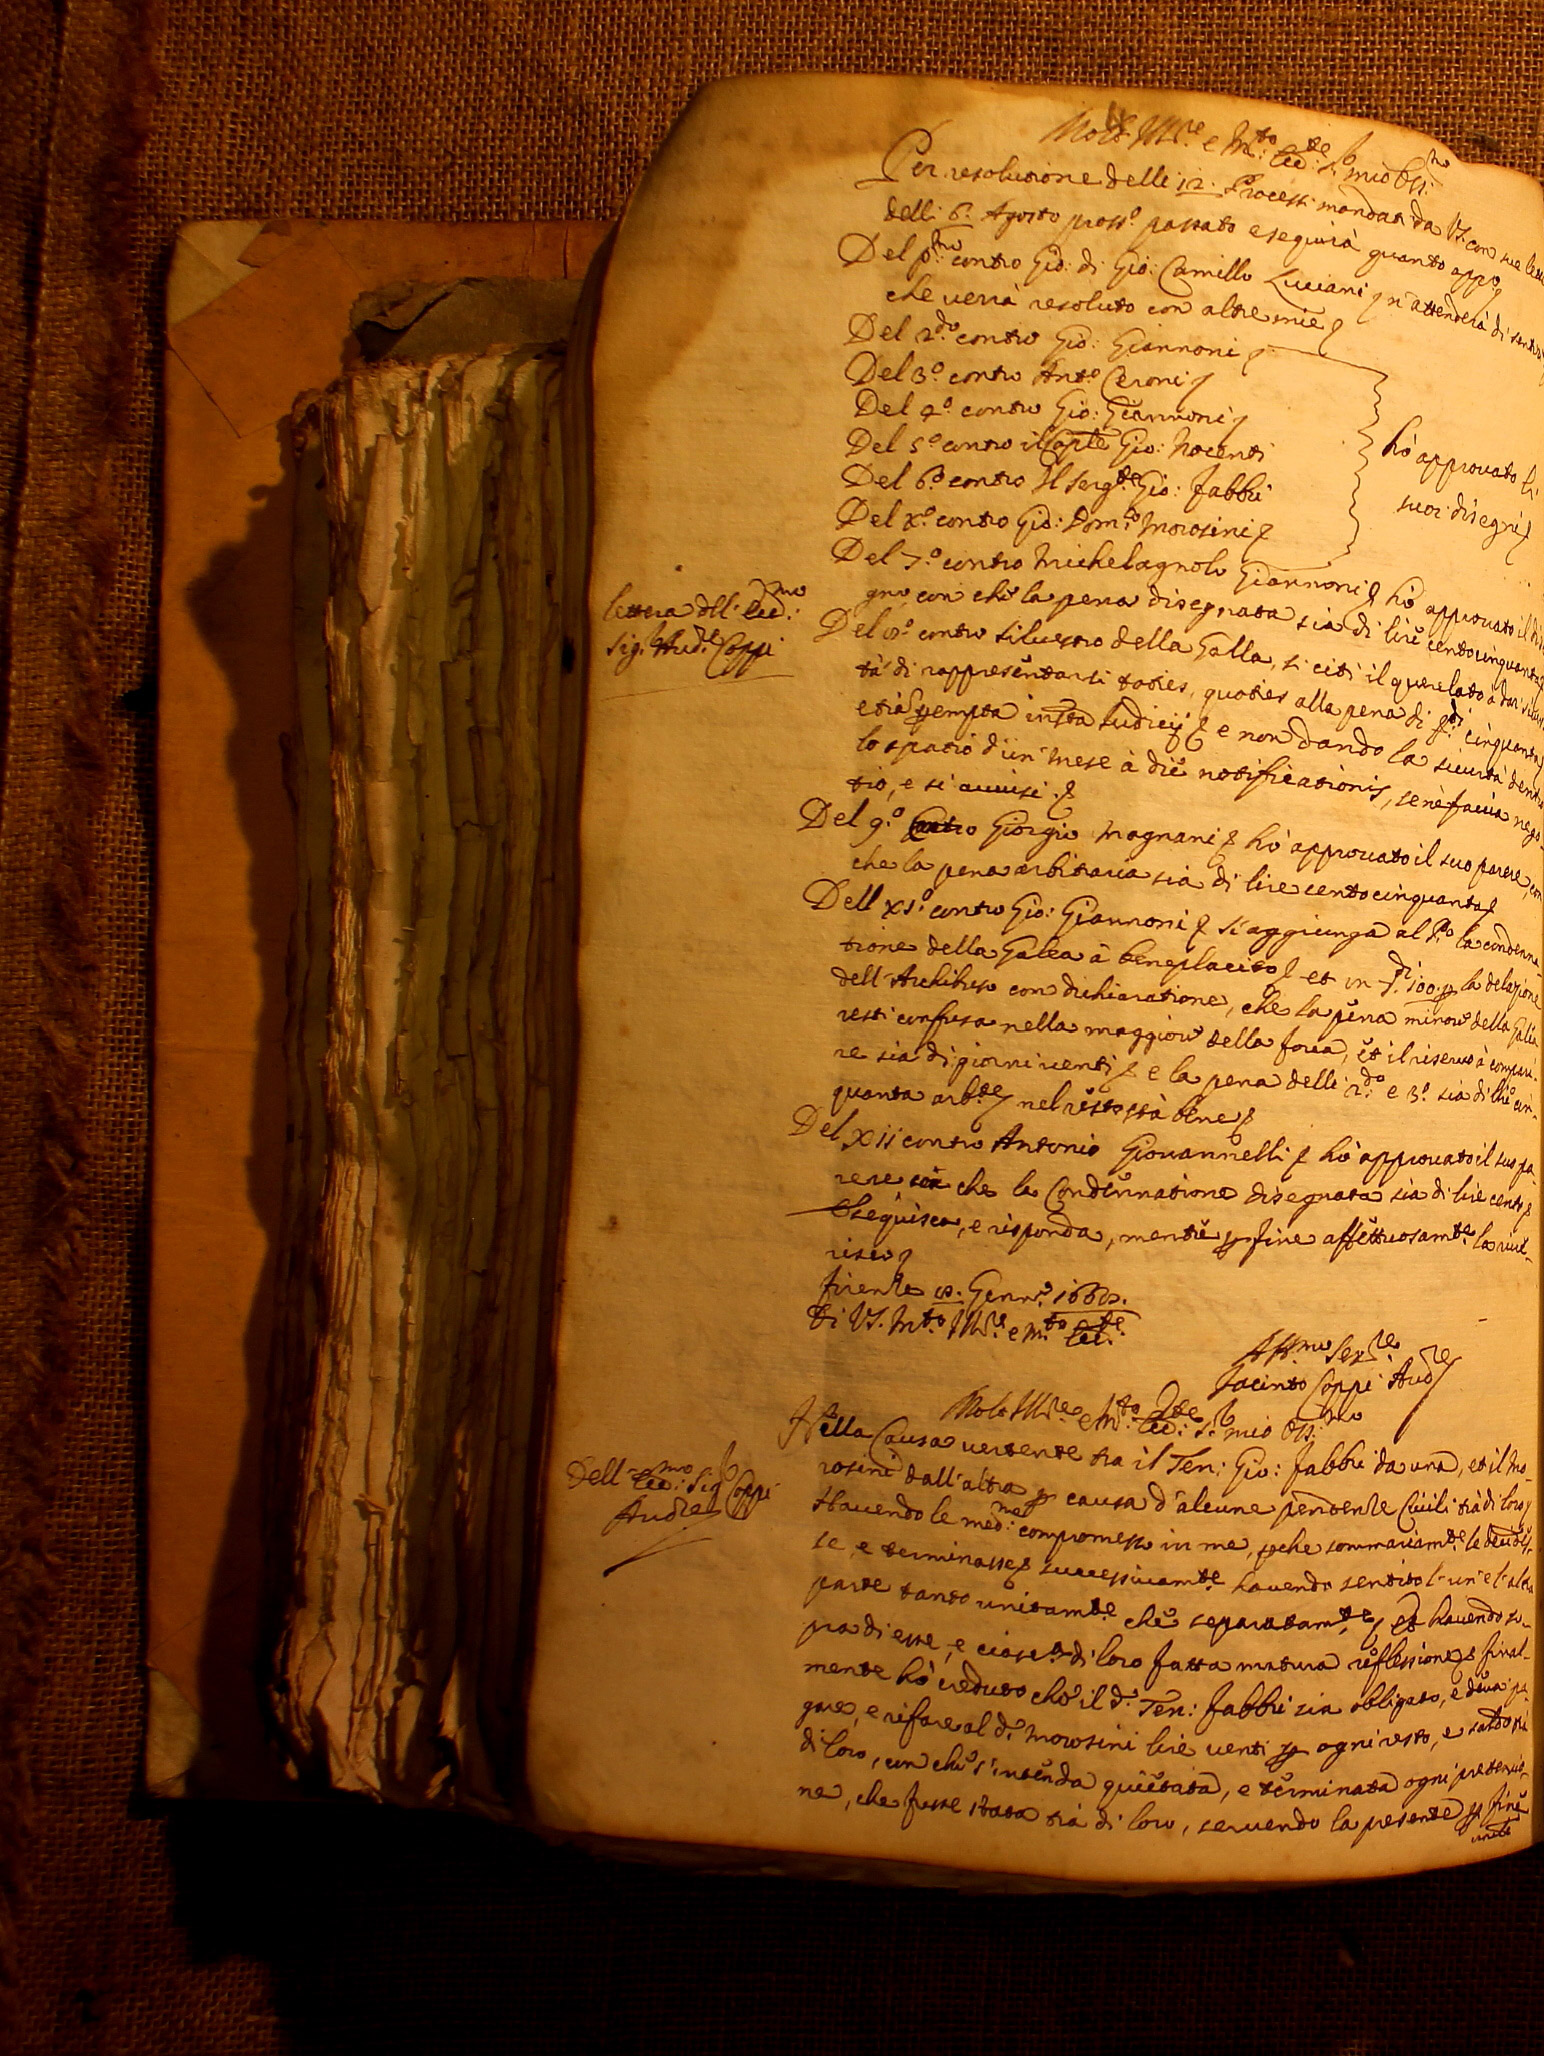 Molt Ill.re e M.to Ecc.te S.r mio Oss.mo
Per resolutione delli 12. Processi mandati da VS. con sue lette
delli 6. Agosto pross.o passato eseguirà quanto app.o
Del p.mo contro Gio: di Gio: Camillo Luciani n'attenderà di sentir
che verrà resoluto con altre mie
Del 2.do contro Gio: Giannoni
Del 3.o contro Ant.o Ceroni
Del 4.o contro Gio: Giannoni
Del 5.o contro il Cap.le Gio: Nocenti
Del 6.o contro Il Serg.te Gio: Fabbri
Del X.o contro Gio: Dom.co Morosini
hò approvato li
suoi disegni
Del 7.o contro Michelagnolo Giannoni hò approvato il dise
gno con che la pena disegnata sia di lire centocinquanta
lettera dell' Ecc.mo
Sig.r Aud.re Coppi
Del 8.o contro Silvestro della Galla, si citi il querelato à dar sicur
tà di rappresentarsi toties, quoties alla pena di cinquanta
e non dando la sicurtà dentro
lo spatio d'un Mese à die notificationis, se nè faccia nego
tio, e si avvisi.
Del 9.o Contro Giorgio Magnani hò approvato il suo parere, con
che la pena arbitraria sia di lire centocinquanta
Dell' XI.o contro Gio: Giannoni si aggiunga al P.o la condenna
tione della Galea à beneplacito et in 100. p la delazione
dell'Archibuso con dichiaratione, che la pena minore della Galea
resti confusa nella maggiore della forca, et il riservo à compari
re sia di giorni venti e la pena delli 2.do e 3.o sia di lire cin
quanta arb.te nel resto stà bene
Del XII contro Antonio Giovannelli hò approvato il suo pa
rere che la Condennatione disegnata sia di lire cento
Eseguisca, e risponda, mentre p fine affettuosam.te la rive
risco
Firenze 8. Genn.o
Di VS. M.to Ill.re e M.to Ecc.te
Aff.mo Ser.re
Jacinto Coppi Aud.re
Molt Ill.re e M.to Ecc.te S.r mio Oss.mo
Nella Causa vertente tra il Ten: Gio: Fabbri da una, et il Mo
rosini dall'altra p causa d'alcune pendenze Civili trà di loro
Dell' Ecc.mo Sig.r Coppi
Aud.re
Havendo le med.me compromesso in me, p che sommariam.te le decides
se, e terminasse successivam.te havendo sentito l'un' e l'altra
parte tanto unitam.te che separatam.te et havendo so
pra di esse, e ciasc.a di loro fatta matura reflessione final
mente hò creduto che il d.o Ten: Fabbri sia obligato, e deva pa
gare, e rifare al d.o Morosini lire venti p ogni resto, e saldo trà
di loro, con che s'intenda quietata, e terminata ogni pretensio
ne, che fusse stata trà di loro, servendo la presente p fine